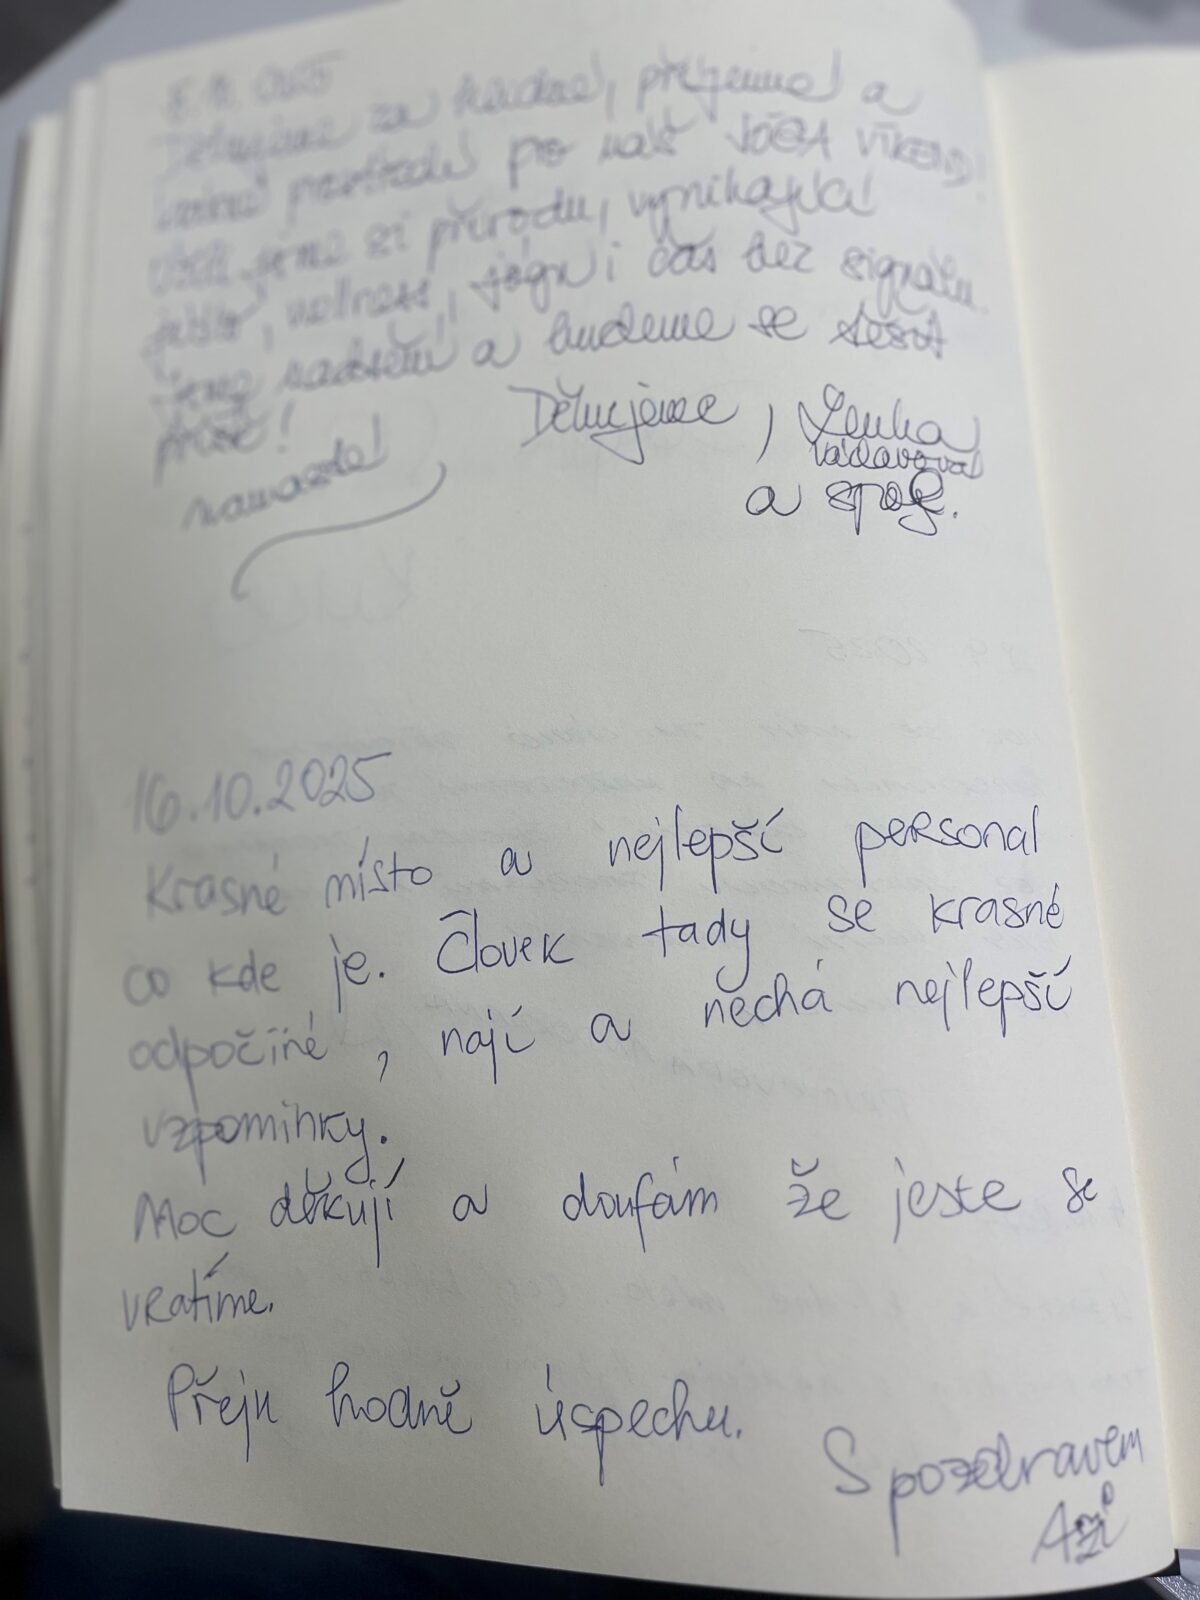 Děkujeme za krásné, příjemné a
prostředí pro naš JÓGA VÍKEND!
jsme si přírodu, vynikající
jídlo, wellness, jógu i čas bez signálu.
jsme nadšení a budeme se těšit
příště!
Děkujeme, Lenka
namaste!
a spol.
16.10.2025
Krasné místo a nejlepší personal
co kde je. Človek tady se krasné
odpočiné, nají a nechá nejlepší
vzpominky.
Moc děkují a doufám že jeste se
vratíme.
Přeju hodně úspechu.
S pozdravem